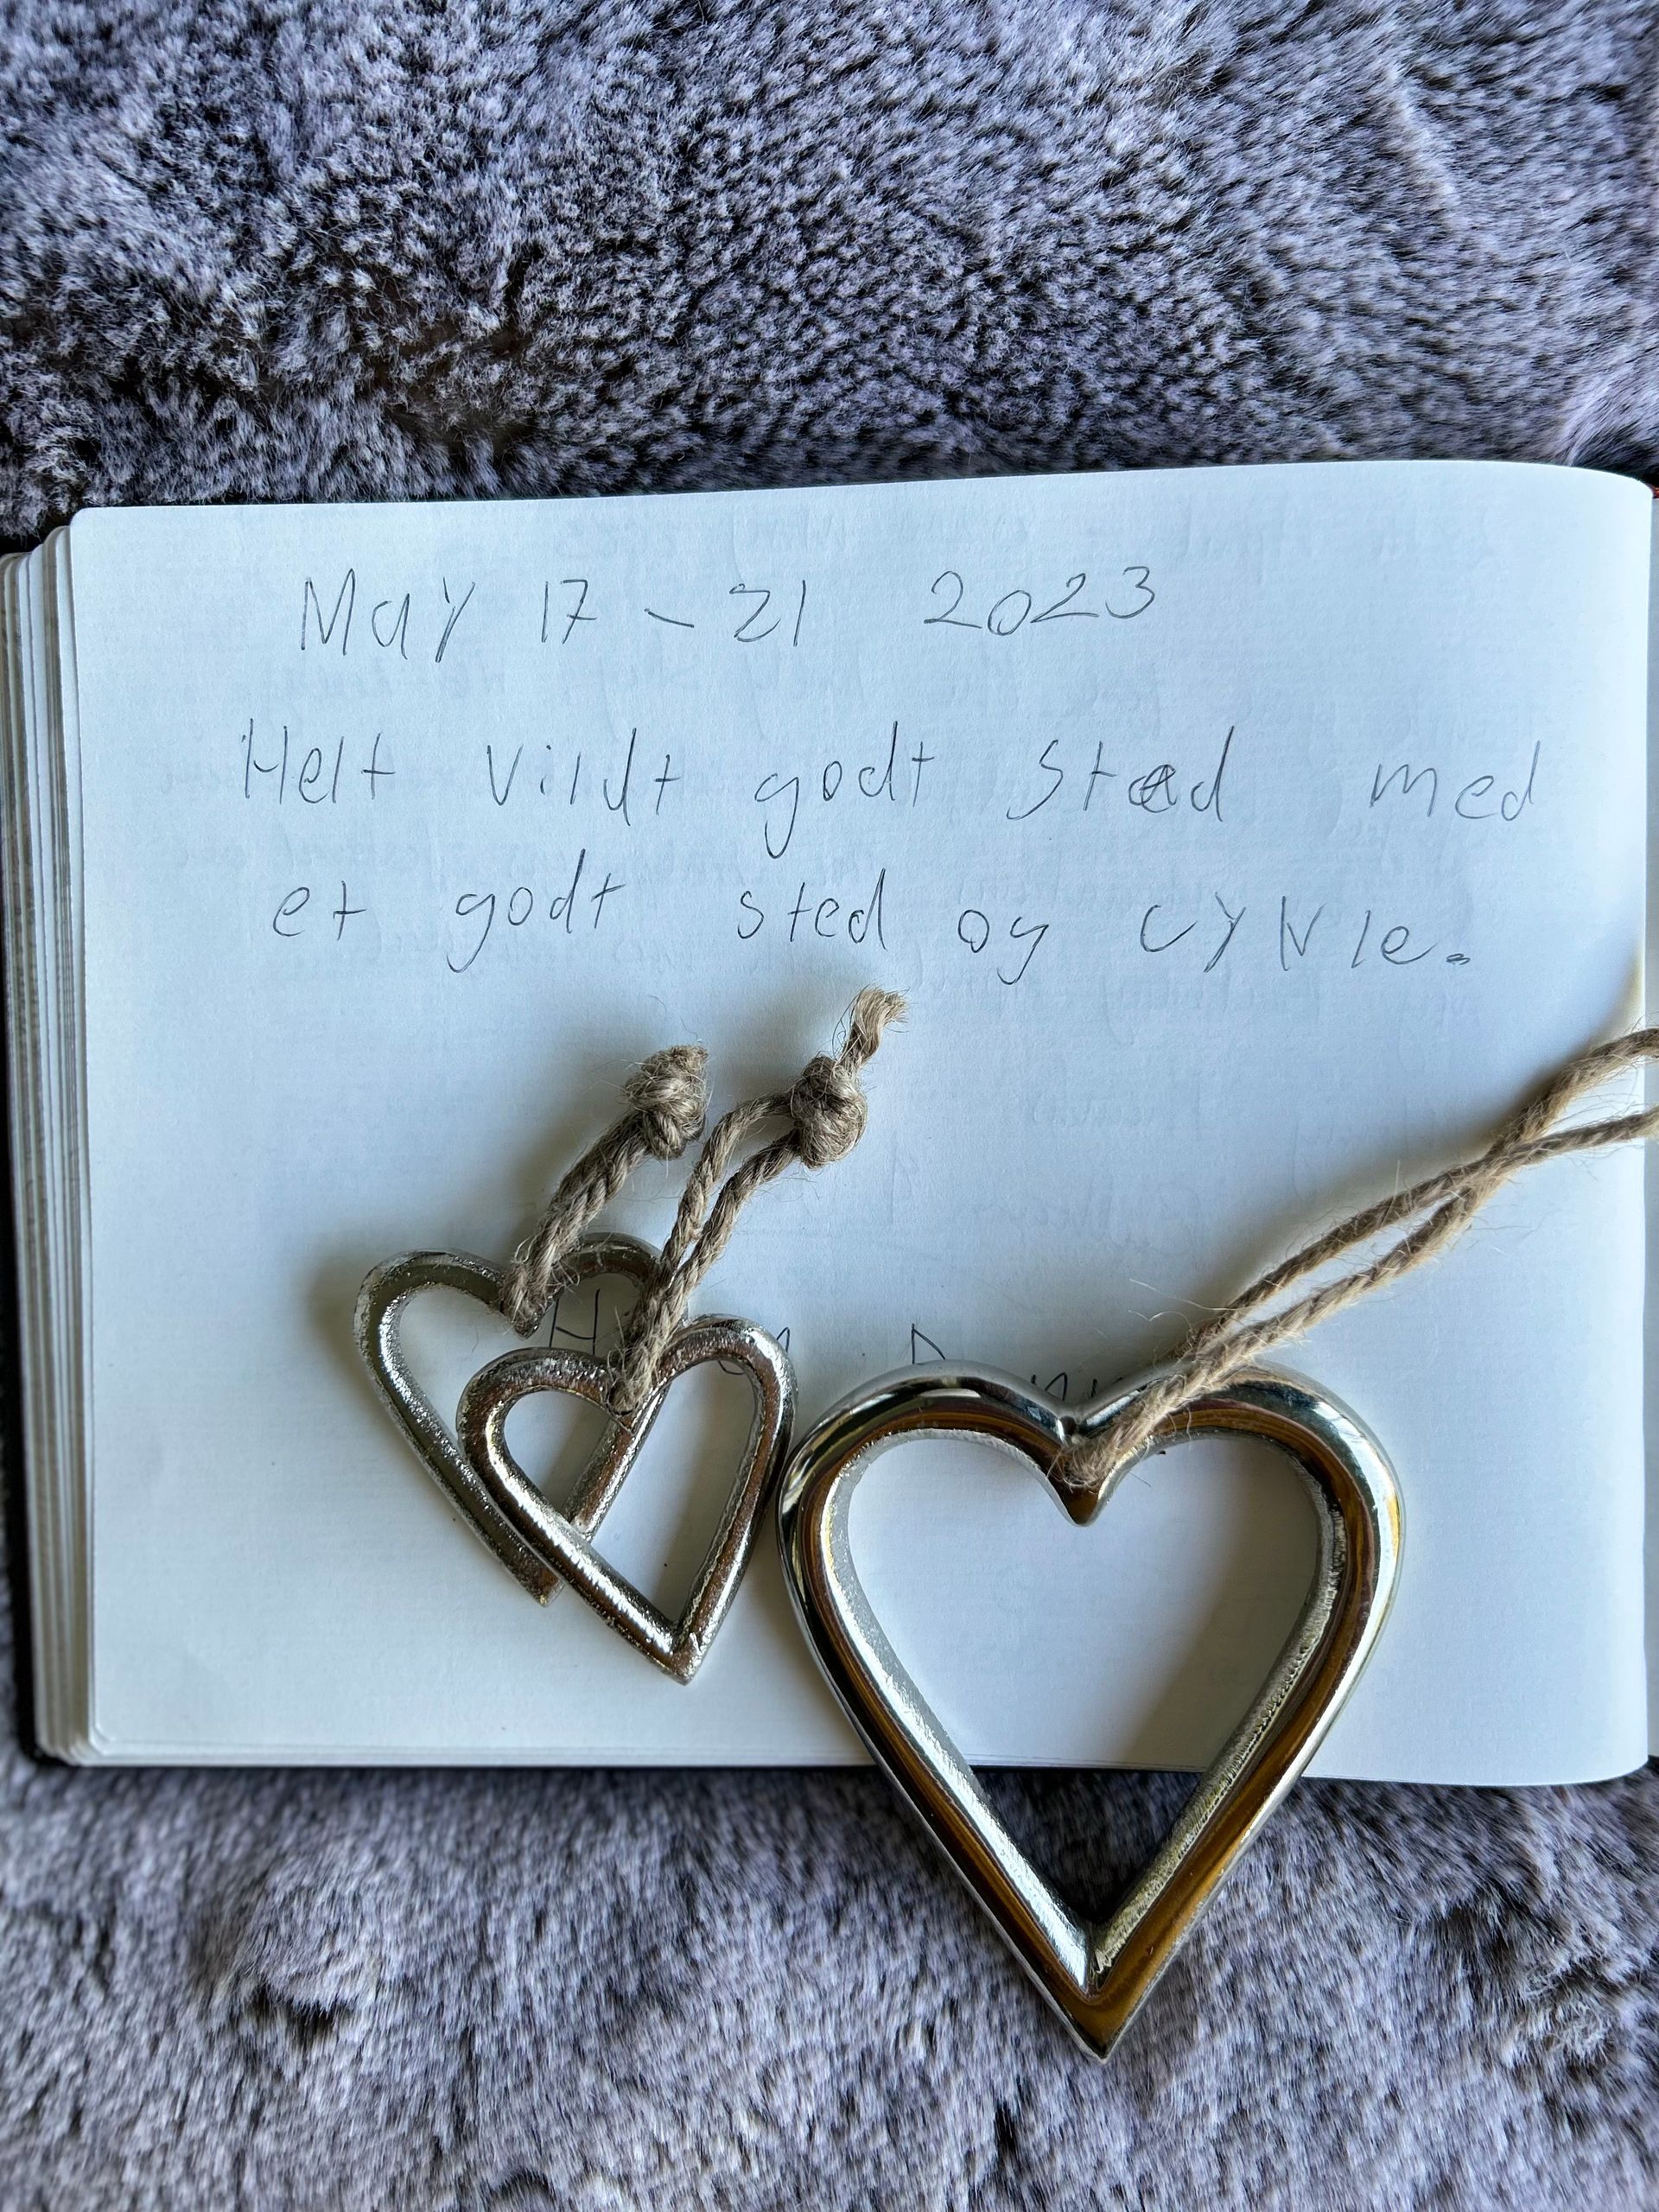 May 17-21 2023
Helt vildt godt sted med
et godt sted og cykle.